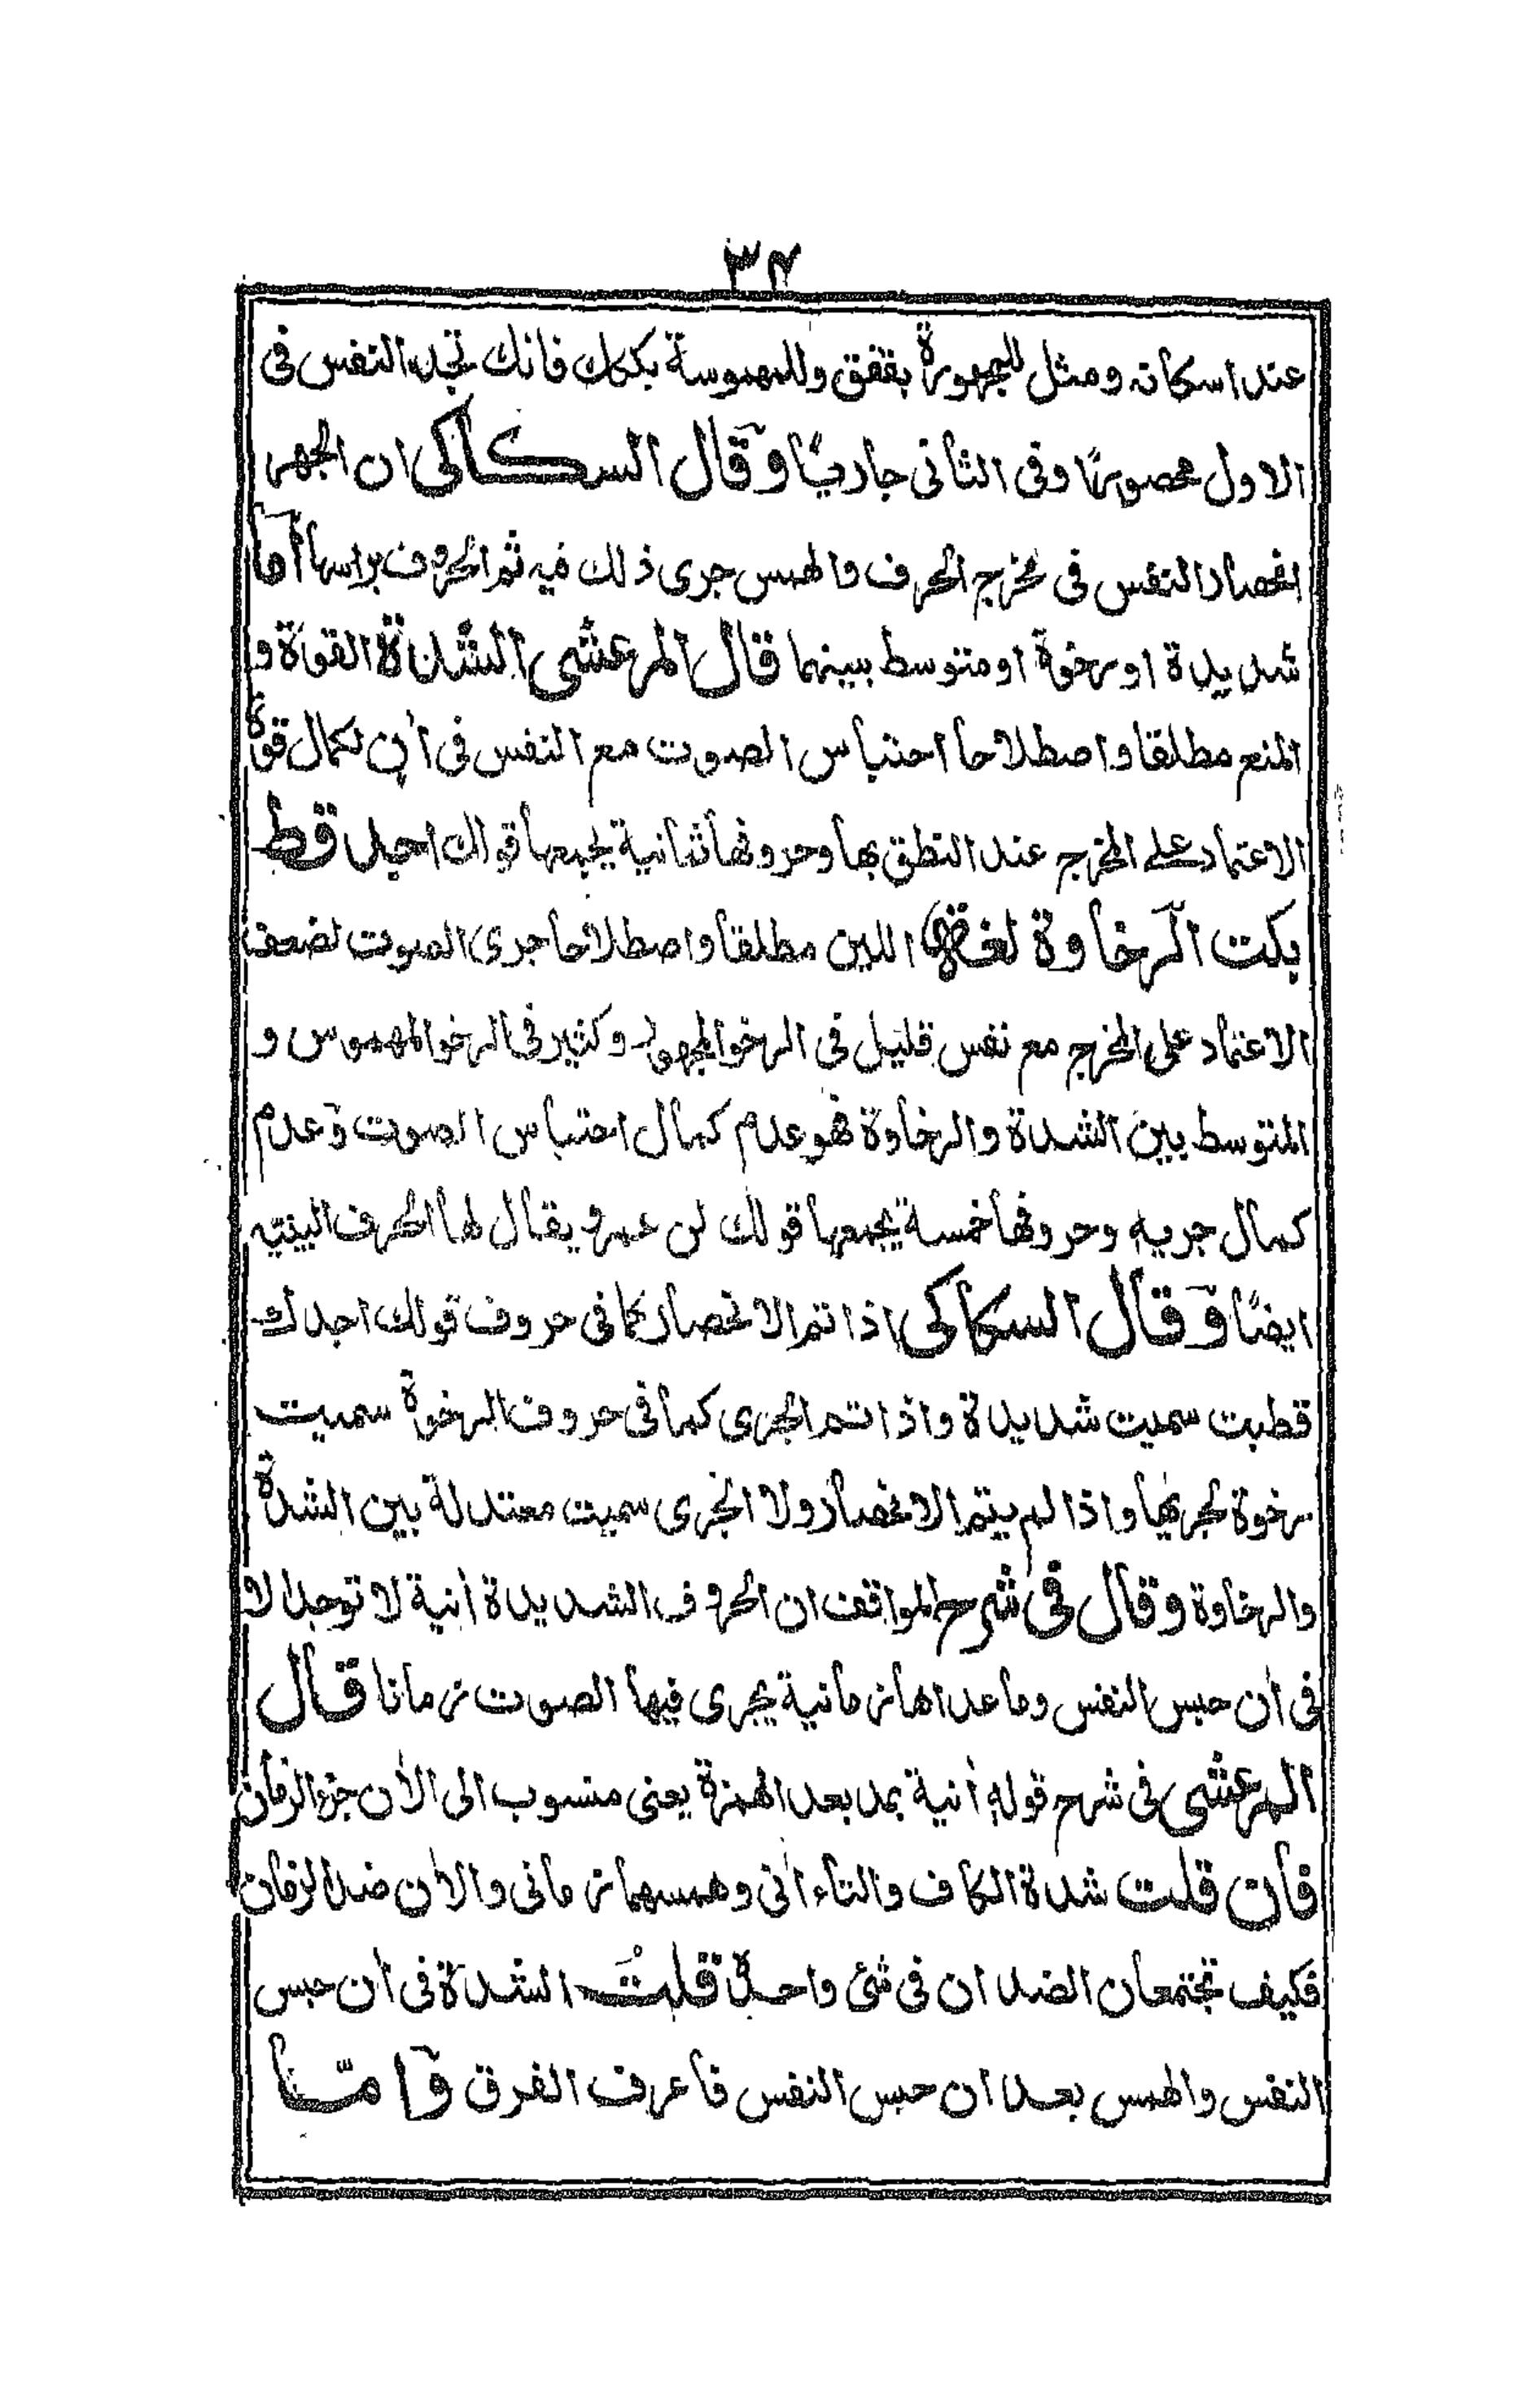 ٣٤
عند اسكانه ومثل للمجهورة بققق وللمهموسة بككك فانك تجد النفس فى
الاول محصورًا وفى الثانى جاريًا وقال السكاكى ان الجهر
انحصار النفس فى مخرج الحرف والهمس جرى ذلك فيه ثم الحروف براسها اما
شديدة او رخوة او متوسط بينهما قال المرعشى الشدة القوة و
المنع مطلقا واصطلاحا احتباس الصوت مع النفس فى اٰن لكمال قوة
الاعتماد على المخرج عند النطق بها وحروفها ثمانية يجمعها قولك اجد قط
بكت الرخاوة لغة اللين مطلقا واصطلاحا جرى الصوت لضعف
الاعتماد على المخرج مع نفس قليل فى الرخو المجهور وكثير فى الرخو المهموس و
المتوسط بين الشدة والرخاوة فهو عدم كمال احتباس الصوت وعدم
كمال جريه وحروفها خمسة يجمعها قولك لن عمر ويقال لها الحرف البينيه
ايضًا وقال السكاكى اذا تم الانحصار كما فى حروف قولك اجدك
قطبت سميت شديدة واذا تم الجرى كما فى حروف الرخوة سميت
رخوة لجريها واذا لم يتم الانحصار ولا الجرى سميت معتدلة بين الشدة
والرخاوة وقال فى شرح المواقف ان الحروف الشديدة اٰنية لا توجد الا
فى اٰن حبس النفس وما عداها زمانية يجرى فيها الصوت زمانا قال
المرعشى فى شرح قوله اٰنية بمد بعد الهمزة يعنى منسوب الى الاٰن جزء الزمان
فان قلت شدة الكاف والتاء اٰنى وهمسهما زمانى والاٰن ضد الزمان
فكيف تجتمعان الضدان فى شئ واحد قلت الشدة فى اٰن حبس
النفس والهمس بعد اٰن حبس النفس فاعرف الفرق وامتا